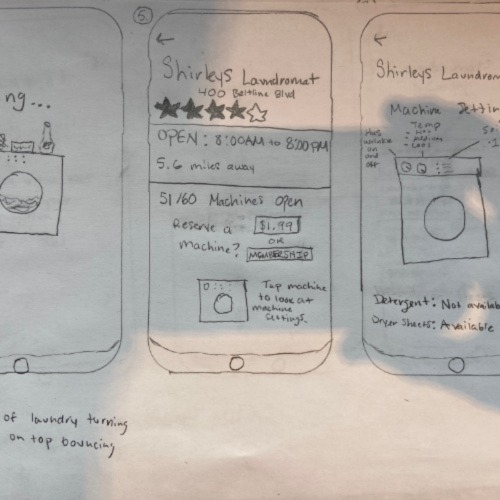 ng...
of laundry turning
on top bouncing
5.
←
Shirleys Laundromat
400 Beltline Blvd
OPEN: 8:00AM to 8:00PM
5.6 miles away
51/60 Machines Open
Reserve a
machine?
$1.99
OR
MEMBERSHIP
Tap machine
to look at
machine
settings.
←
Shirleys Laundrom
Machine Settin
Temp
- Hot
- medium
on
and
off
Detergent: Not availab
Dryer Sheets: Available